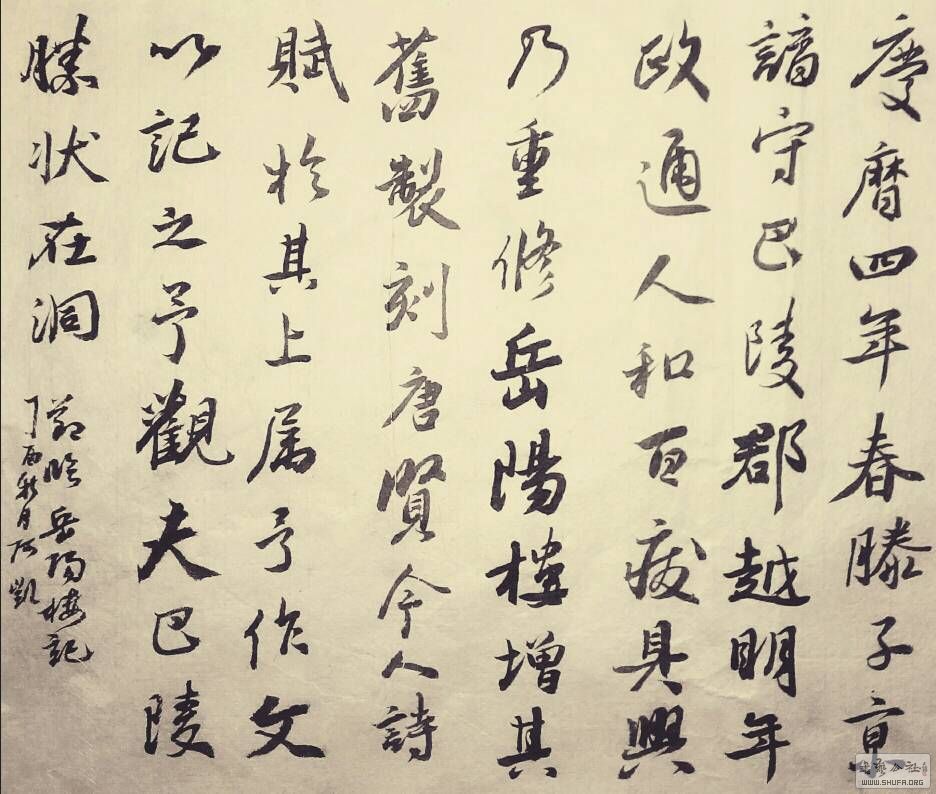 慶曆四年春滕子京
謫守巴陵郡越明年
政通人和百廢具興
乃重修岳陽樓增其
舊製刻唐賢今人詩
賦於其上属予作文
以記之予觀夫巴陵
勝状在洞
節臨岳陽樓記
丁酉秋月阿凱
书艺公社
WWW.SHUFA.ORG